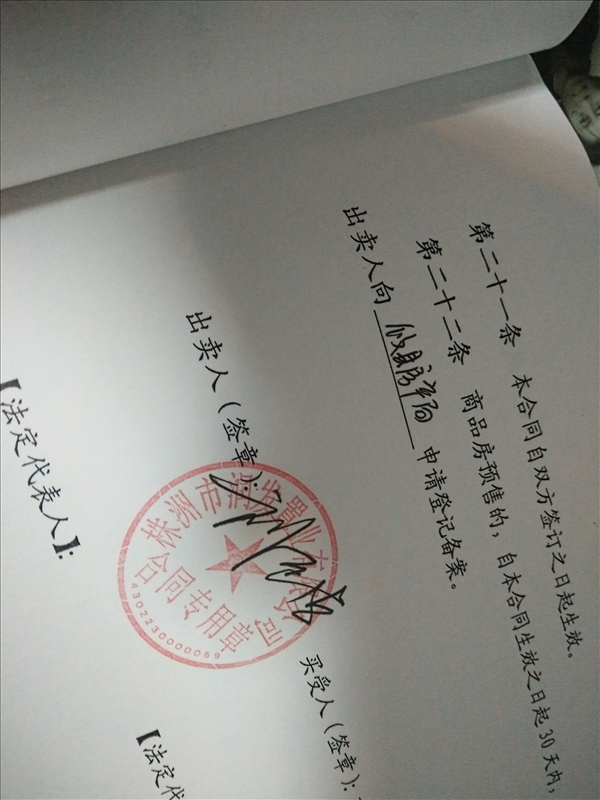 第二十一条 本合同自双方签订之日起生效。
第二十二条 商品房预售的，自本合同生效之日起30天内，
出卖人向攸县房产局申请登记备案。
出卖人（签章）：
买受人（签章）：
【法定代表人】：
【法定代
置业有限公司
合同专用章
4302230000069